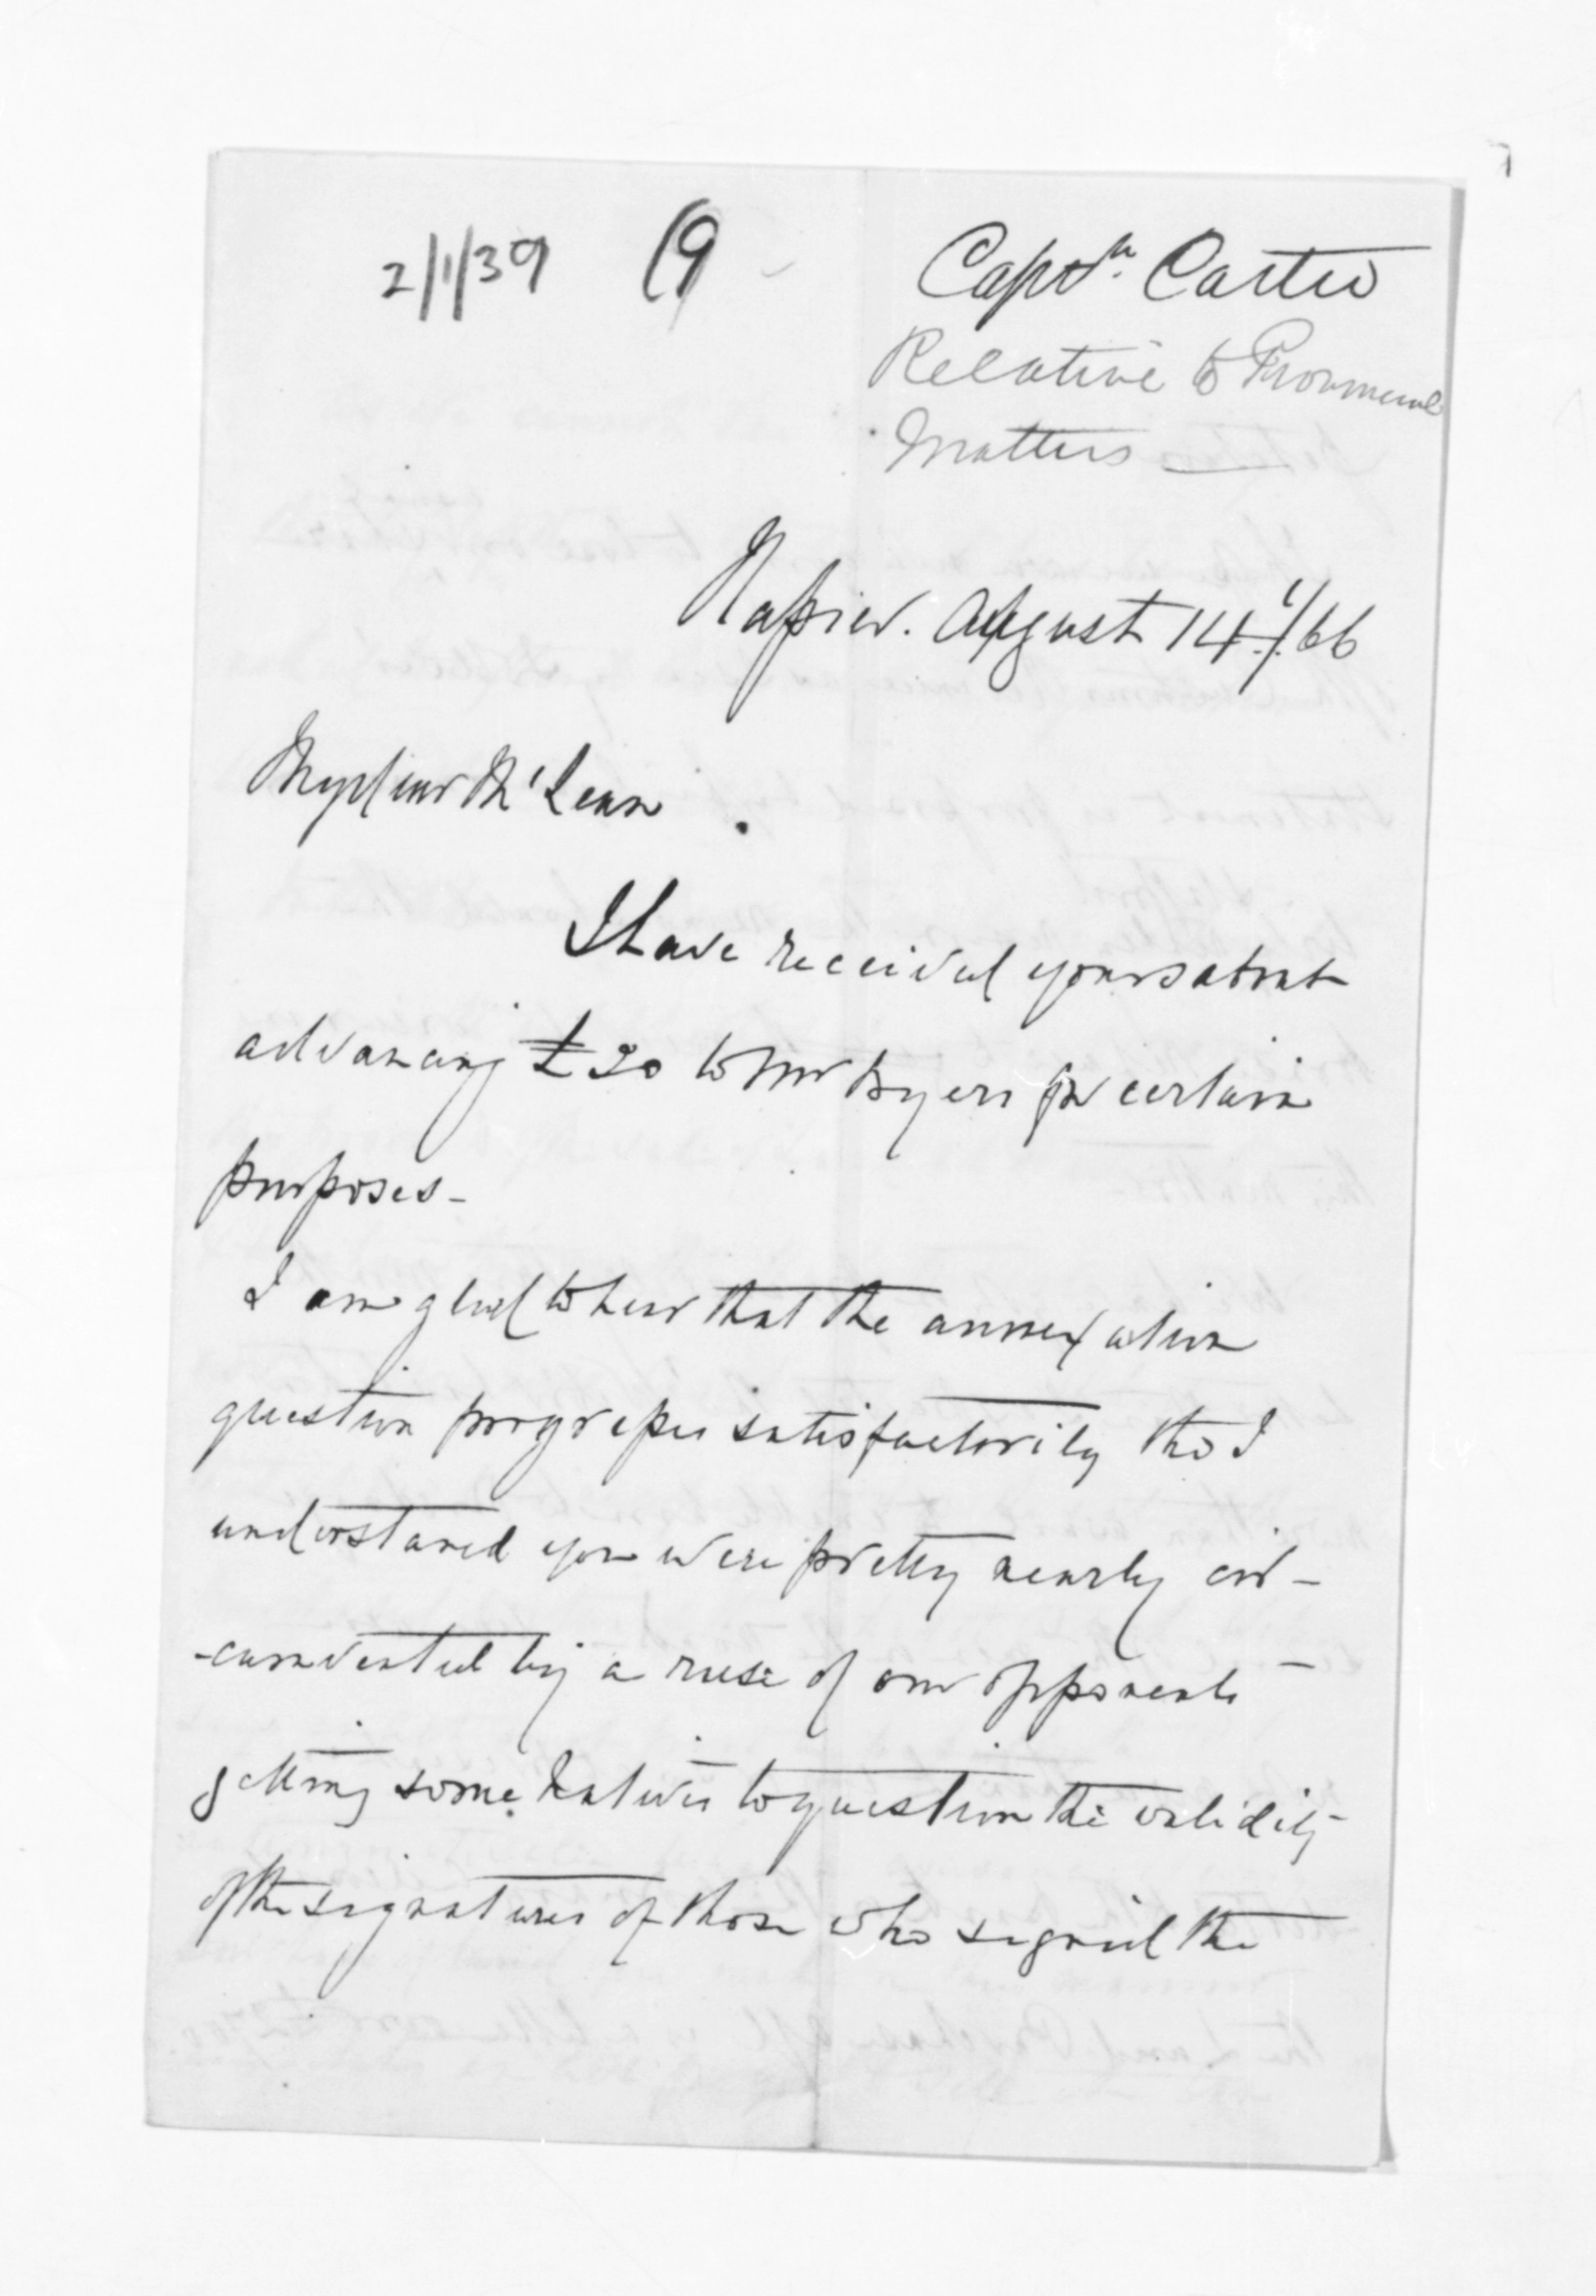 2/1/39 (9
Captn. Carter
Relative to Provincial
Matters —
Napier. August 14th/66
My dear McLean
I have received yours about
advancing £20 to Mr Byers for certain
purposes -
I am glad to hear that the annexation
question progresses satisfactorily tho I
understand you were pretty nearly cir-
-cumvented by a ruse of our opponents -
getting some Natives to question the validity
of the signatures of those who signed the